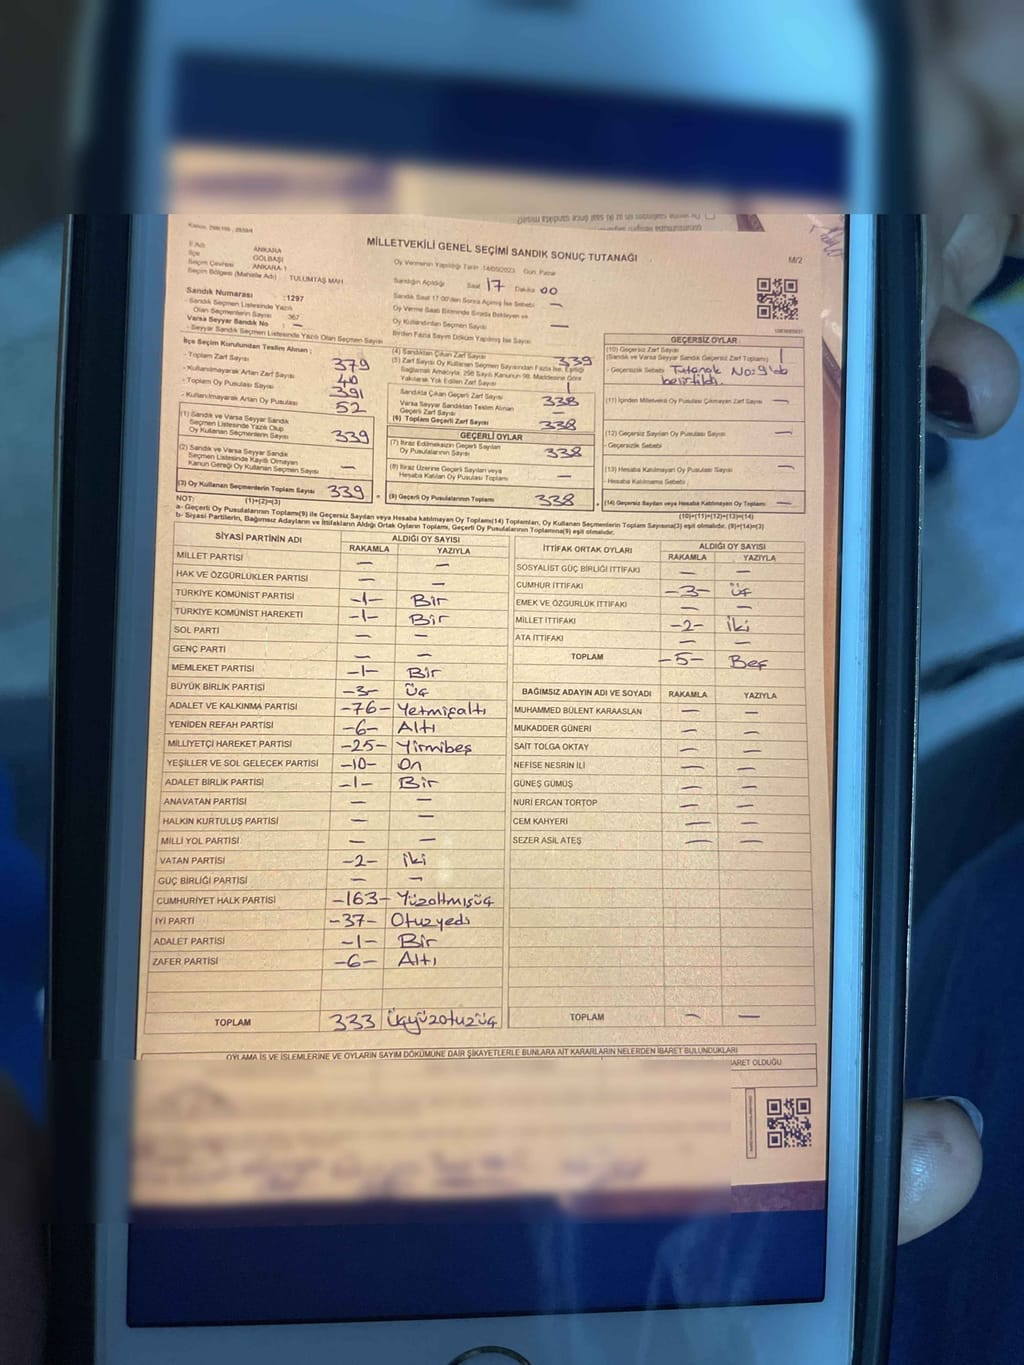 MİLLETVEKİLİ GENEL SEÇİMİ SANDIK SONUÇ TUTANAĞI
M/2
İl Adı ANKARA
İlçe GÖLBAŞI
Seçim Çevresi ANKARA-1
Seçim Bölgesi (Mahalle Adı) : TULUMTAŞ MAH.
Oy Vermenin Yapıldığı Tarih :14/05/2023 Gün: Pazar
Sandığın Açıldığı Saat 17 Dakika 00
Sandık Saat 17:00'den Sonra Açılmış İse Sebebi —
Oy Verme Saati Bitiminde Sırada Bekleyen ve
Oy Kullandırılan Seçmen Sayısı —
Birden Fazla Sayım Döküm Yapılmış İse Sayısı
Sandık Numarası :1297
- Sandık Seçmen Listesinde Yazılı
Olan Seçmenlerin Sayısı 367
Varsa Seyyar Sandık No : —
- Seyyar Sandık Seçmen Listesinde Yazılı Olan Seçmen Sayısı
İlçe Seçim Kurulundan Teslim Alınan ;
- Toplam Zarf Sayısı 379
- Kullanılmayarak Artan Zarf Sayısı 40
- Toplam Oy Pusulası Sayısı 391
- Kullanılmayarak Artan Oy Pusulası 52
(1) Sandık ve Varsa Seyyar Sandık
Seçmen Listesinde Yazılı Olup
Oy Kullanan Seçmenlerin Sayısı 339
(2) Sandık ve Varsa Seyyar Sandık
Seçmen Listesinde Kayıtlı Olmayan
Kanun Gereği Oy Kullanan Seçmen Sayısı —
(3) Oy Kullanan Seçmenlerin Toplam Sayısı 339
(1)+(2)=(3)
(4) Sandıktan Çıkan Zarf Sayısı 339
(5) Zarf Sayısı Oy Kullanan Seçmen Sayısından Fazla İse, Eşitliği
Sağlamak Amacıyla, 298 Sayılı Kanunun 98. Maddesine Göre
Yakılarak Yok Edilen Zarf Sayısı
Sandıkta Çıkan Geçerli Zarf Sayısı 338
Varsa Seyyar Sandıktan Teslim Alınan
Geçerli Zarf Sayısı —
(6) Toplam Geçerli Zarf Sayısı 338
GEÇERLİ OYLAR
(7) İtiraz Edilmeksizin Geçerli Sayılan
Oy Pusulasının Sayısı 338
(8) İtiraz Üzerine Geçerli Sayılan veya
Hesaba Katılan Oy Pusulası Toplamı —
(9) Geçerli Oy Pusulalarının Toplamı 338
GEÇERSİZ OYLAR
(10) Geçersiz Zarf Sayısı
(Sandık ve Varsa Seyyar Sandık Geçersiz Zarf Toplamı) 1
- Geçersizlik Sebebi Tutanak No:9'da
belirtildi.
(11) İçinden Milletvekili Oy Pusulası Çıkmayan Zarf Sayısı —
(12) Geçersiz Sayılan Oy Pusulası Sayısı —
- Geçersizlik Sebebi
(13) Hesaba Katılmayan Oy Pusulası Sayısı —
- Hesaba Katılmama Sebebi
(14) Geçersiz Sayılan veya Hesaba Katılmayan Oy Toplamı —
(10)+(11)+(12)+(13)=(14)
NOT:
a- Geçerli Oy Pusulalarının Toplamı(9) ile Geçersiz Sayılan veya Hesaba katılmayan Oy Toplamı(14) Toplamları, Oy Kullanan Seçmenlerin Toplam Sayısına(3) eşit olmalıdır. (9)+(14)=(3)
b- Siyasi Partilerin, Bağımsız Adayların ve İttifakların Aldığı Ortak Oyların Toplamı, Geçerli Oy Pusulalarının Toplamına(9) eşit olmalıdır.
SİYASİ PARTİNİN ADI ALDIĞI OY SAYISI
RAKAMLA YAZIYLA
MİLLET PARTİSİ — —
HAK VE ÖZGÜRLÜKLER PARTİSİ — —
TÜRKİYE KOMÜNİST PARTİSİ -1- Bir
TÜRKİYE KOMÜNİST HAREKETİ -1- Bir
SOL PARTİ — —
GENÇ PARTİ — —
MEMLEKET PARTİSİ -1- Bir
BÜYÜK BİRLİK PARTİSİ -3- Üç
ADALET VE KALKINMA PARTİSİ -76- Yetmişaltı
YENİDEN REFAH PARTİSİ -6- Altı
MİLLİYETÇİ HAREKET PARTİSİ -25- Yirmibeş
YEŞİLLER VE SOL GELECEK PARTİSİ -10- On
ADALET BİRLİK PARTİSİ -1- Bir
ANAVATAN PARTİSİ — —
HALKIN KURTULUŞ PARTİSİ — —
MİLLİ YOL PARTİSİ — —
VATAN PARTİSİ -2- iki
GÜÇ BİRLİĞİ PARTİSİ — —
CUMHURİYET HALK PARTİSİ -163- Yüzaltmışüç
İYİ PARTİ -37- Otuzyedi
ADALET PARTİSİ -1- Bir
ZAFER PARTİSİ -6- Altı
TOPLAM 333 Üçyüzotuzüç
İTTİFAK ORTAK OYLARI ALDIĞI OY SAYISI
RAKAMLA YAZIYLA
SOSYALİST GÜÇ BİRLİĞİ İTTİFAKI — —
CUMHUR İTTİFAKI -3- Üç
EMEK VE ÖZGÜRLÜK İTTİFAKI — —
MİLLET İTTİFAKI -2- İki
ATA İTTİFAKI — —
TOPLAM -5- Beş
BAĞIMSIZ ADAYIN ADI VE SOYADI RAKAMLA YAZIYLA
MUHAMMED BÜLENT KARAASLAN — —
MUKADDER GÜNERİ — —
SAİT TOLGA OKTAY — —
NEFİSE NESRİN İLİ — —
GÜNEŞ GÜMÜŞ — —
NURİ ERCAN TORTOP — —
CEM KAHYERİ — —
SEZER ASİL ATEŞ — —
TOPLAM — —
OYLAMA İŞ VE İŞLEMLERİNE VE OYLARIN SAYIM DÖKÜMÜNE DAİR ŞİKAYETLERLE BUNLARA AİT KARARLARIN NELERDEN İBARET BULUNDUKLARI